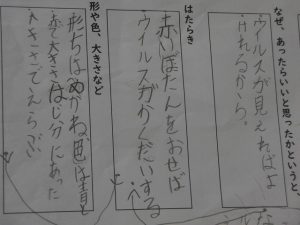 なぜ、あったらいいと思ったかというと、
ウイルスが見えればよ
けれるから。
はたらき
赤いぼたんをおせば
ウイルスがかくだいする
形や色、大きさなど
形ちはめがね、色は青と
赤で大きさはじ分にあった
大きさでえらぶ